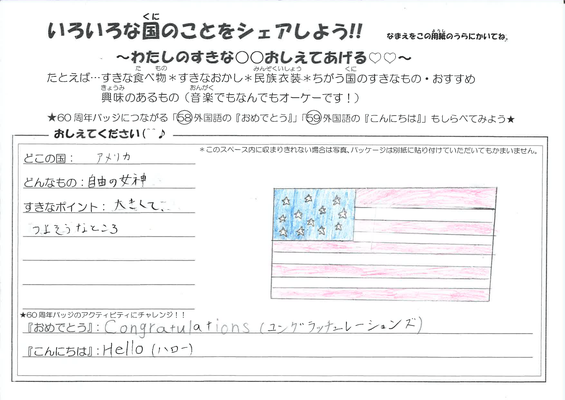 いろいろな国のことをシェアしよう!!
なまえをこの用紙のうらにかいてね。
～わたしのすきな〇〇おしえてあげる♡♡～
たとえば…すきな食べ物＊すきなおかし＊民族衣装＊ちがう国のすきなもの・おすすめ
興味のあるもの（音楽でもなんでもオーケーです！）
★60周年バッジにつながる「58外国語の『おめでとう』」「59外国語の『こんにちは』」もしらべてみよう★
おしえてください(^^♪
＊このスペース内に収まりきれない場合は写真、パッケージは別紙に貼り付けていただいてもかまいません。
どこの国： アメリカ
どんなもの：自由の女神
すきなポイント：大きくて、
つよそうなところ
★60周年バッジのアクティビティにチャレンジ！！
『おめでとう』：Congratulations（コングラッチュレーションズ）
『こんにちは』：Hello（ハロー）